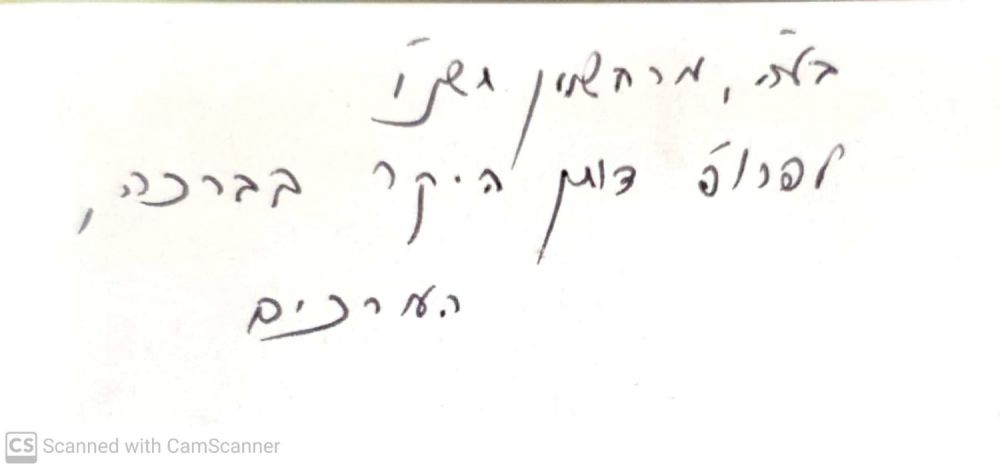 בע"ה, מרחשוון תש"ן
לפרופ' דותן היקר בברכה,
העורכים
CS Scanned with CamScanner